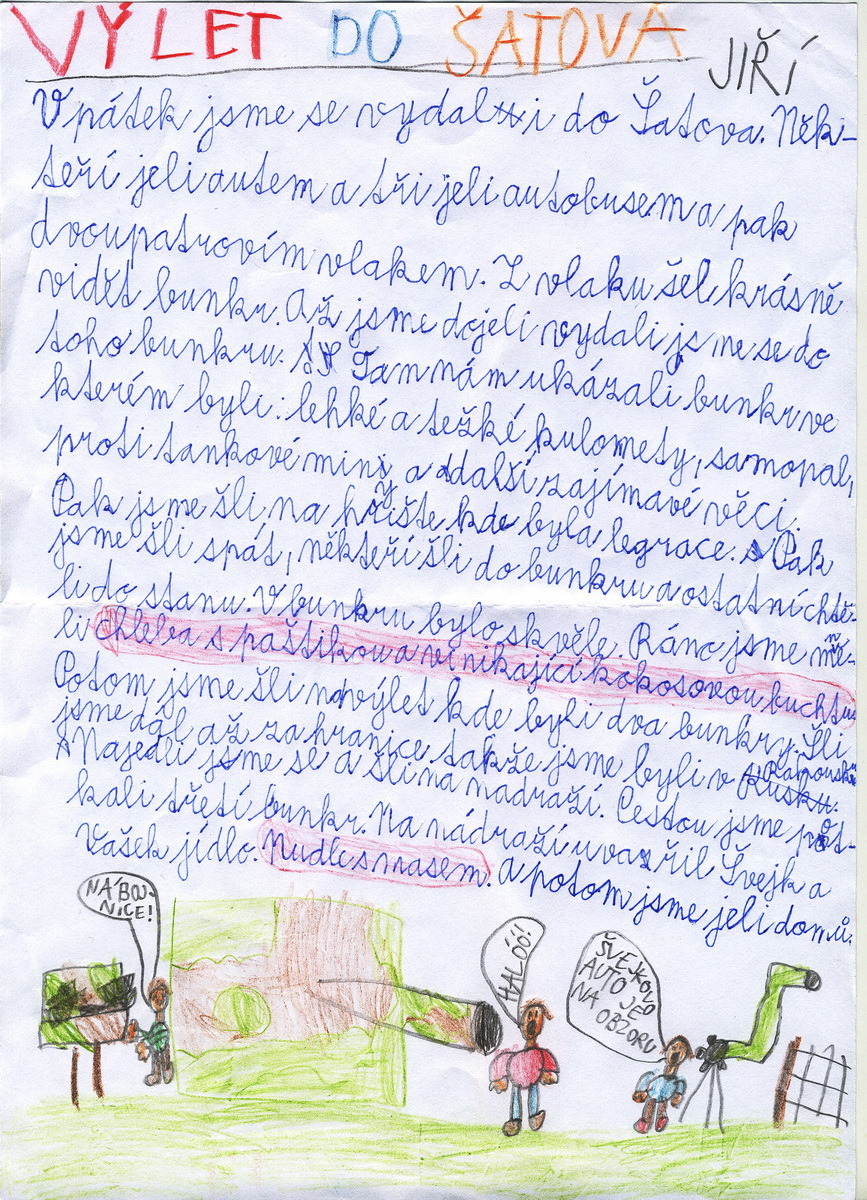 VÝLET DO ŠATOVA
JIŘÍ
V pátek jsme se vydali do Šatova. Něk-
teří jeli autem a tři jeli autobusem a pak
dvoupatrovím vlakem. Z vlaku šel krásně
vidět bunkr. Až jsme dojeli vydali jsme se do
toho bunkru. Tam nám ukázali bunkr ve
kterém byli: lehké a težké kulomety, samopal,
proti tankové miny a další zajímavé věci.
Pak jsme šli na hřište kde byla legrace. Pak
jsme šli spát, někteří šli do bunkru a ostatní chtě-
li do stanu. V bunkru bylo skvěle. Ráno jsme mě-
li chleba s paštikou a vinikající kokosovou buchtu
Potom jsme šli na výlet kde byli dva bunkry. Šli
jsme dál až za hranice takže jsme byli v Rakousku.
Najedli jsme se a šli na nadraží. Cestou jsme pot-
kali třetí bunkr. Na nádraží uvařil Švejk a
Vašek jídlo. Nudle s masem. a potom jsme jeli domů.
NÁBOJ-
NICE!
HALÓÓ!
ŠVEJKOVO
AUTO JE
NA OBZORU